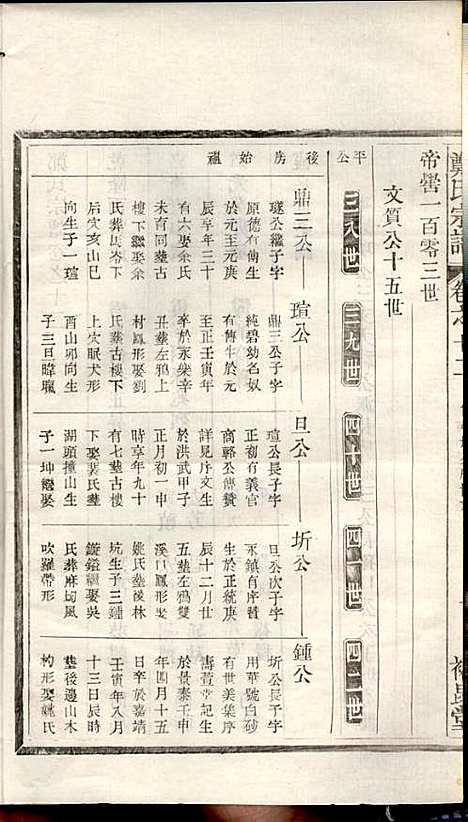 鄭氏宗譜 卷之十二
帝嚳一百零三世
文質公十五世
平公
後房始蘊
三八世
三九世
四十世
四一世
四二世
鼎三公
璲公繼子字
原德有傳生
於元至元庚
辰享年三十
有六娶余氏
未育同塟古
樓下繼娶余
氏葬馬岑下
后穴亥山巳
向生子一瑄
瑄公
鼎三公子字
純碧幼名奴
有傳生於元
至正壬寅年
卒於永樂辛
丑塟左鴉雙
村鳳形娶劉
氏塟古樓下
上穴眠犬形
酉山卯向生
子三旦暐瓛
旦公
瑄公長子字
正初有義官
商輅公傳贊
詳見序文生
於洪武甲子
正月初一申
時享年九十
有七塟古樓
下娶裴氏塟
湖頭撞山生
子一坤繼娶
圻公
旦公次子字
永鎮有序暨
生於正統庚
辰十二月廿
五塟左鴉雙
溪口鳳形娶
姚氏塟後林
坑生子三鍾
鏇鎧繼娶吳
氏葬麻坳風
吹羅帶形
鍾公
圻公長子字
用華號白砂
有世美集序
壽萱堂記生
於景泰壬申
年四月十五
日卒於嘉靖
壬寅年八月
十三日辰時
塟後邊山木
杓形娶姚氏